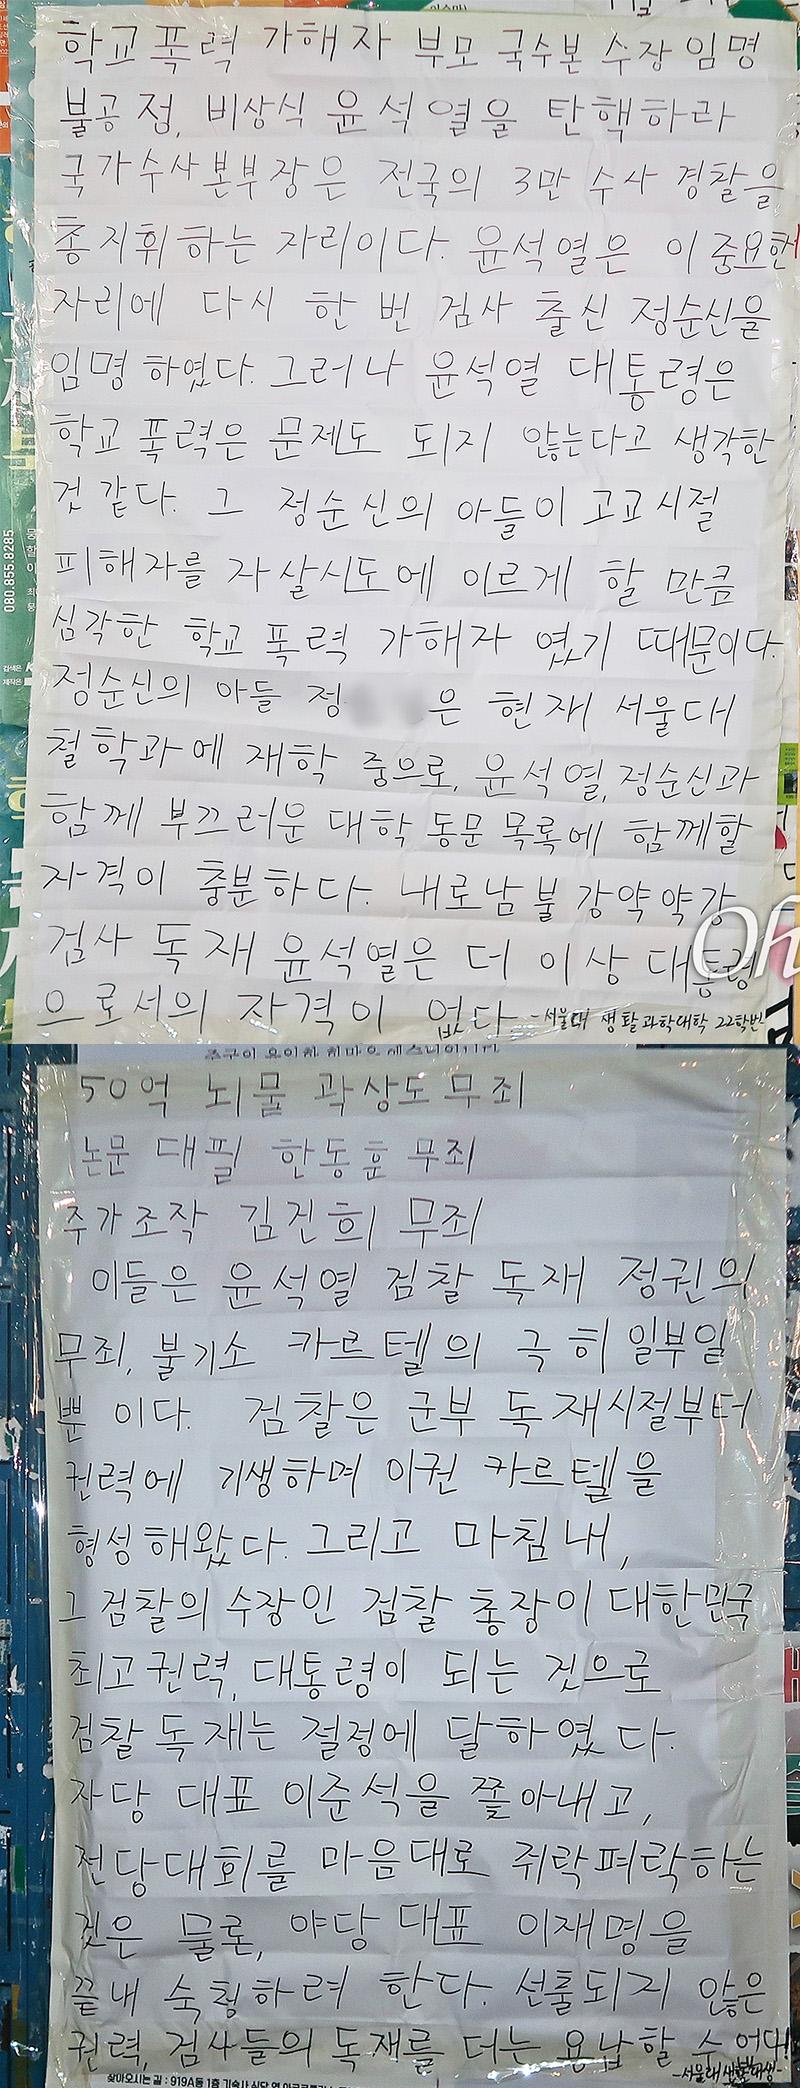 학교 폭력 가해자 부모 국수본 수장 임명
불공정, 비상식 윤석열을 탄핵하라
국가수사본부장은 전국의 3만 수사 경찰을
총지휘하는 자리이다. 윤석열은 이 중요한
자리에 다시 한 번 검사 출신 정순신을
임명 하였다. 그러나 윤석열 대통령은
학교 폭력은 문제도 되지 않는다고 생각한
것 같다. 그 정순신의 아들이 고교시절
피해자를 자살시도에 이르게 할 만큼
심각한 학교 폭력 가해자 였기 때문이다.
정순신의 아들 정 은 현재 서울대
철학과에 재학 중으로, 윤석열, 정순신과
함께 부끄러운 대학 동문 목록에 함께할
자격이 충분하다. 내로남불 강약약강
검사 독재 윤석열은 더 이상 대통령
으로서의 자격이 없다 -서울대 생활과학대학 22학번-
Oh
080.855.8285
50억 뇌물 곽상도 무죄
논문 대필 한동훈 무죄
주가조작 김건희 무죄
이들은 윤석열 검찰 독재 정권의
무죄, 불기소 카르텔의 극히 일부일
뿐 이다. 검찰은 군부 독재시절부터
권력에 기생하며 이권 카르텔을
형성해왔다. 그리고 마침내,
그 검찰의 수장인 검찰 총장이 대한민국
최고권력, 대통령이 되는 것으로
검찰 독재는 절정에 달하였다.
자당 대표 이준석을 쫓아내고,
전당대회를 마음대로 쥐락펴락하는
것은 물론, 야당 대표 이재명을
끝내 숙청하려 한다. 선출되지 않은
권력, 검사들의 독재를 더는 용납할 수 없다!
-서울대 생활대생-
찾아오시는 길 : 919A동 1층 기숙사 식당 옆